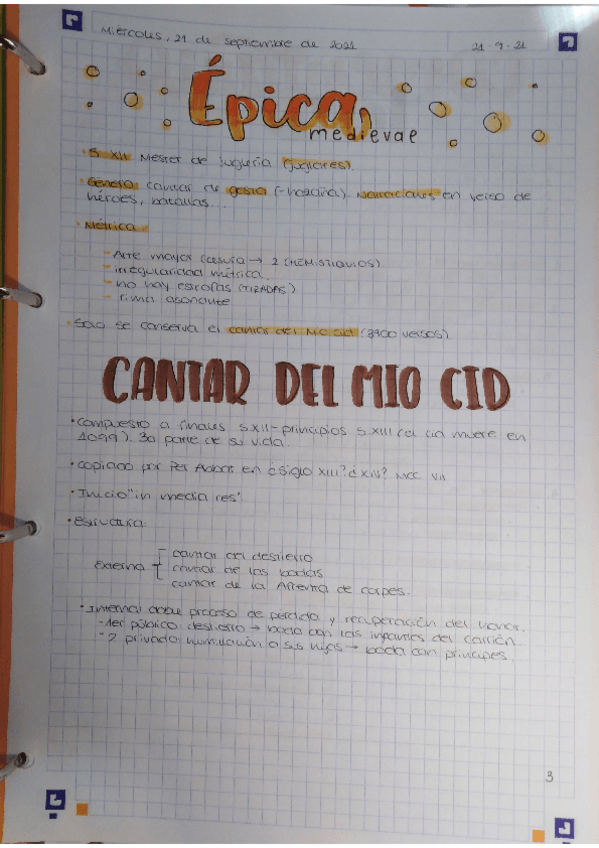 Miércoles, 21 de septiembre de 2021
21-9-21
Épica
medieval
· S. XII Mester de juglaría (juglares).
· Género: cantar de gesta (-hazaña). Narraciones en verso de
héroes, batallas...
· Métrica
- Arte mayor (cesura → 2 HEMISTIQUIOS)
- irregularidad métrica.
- no hay estrofas (TIRADAS)
- rima asonante
· Solo se conserva el cantar del Mio Cid (3900 versos)
CANTAR DEL MIO CID
· Compuesto a finales S.XII-principios S.XIII (el Cid muere en
1099). 3a parte de su vida.
· Copiado por Per Abbat en ¿siglo XIII? ¿XIV? MCC VII
· Inicio "in media res"
· Estructura:
Externa
cantar del destierro
cantar de las bodas
cantar de la Afrenta de corpes.
· Interna: doble proceso de pérdida y recuperación del honor.
- 1er público: destierro → boda con los infantes del carrión.
- 2 privado: humillación a sus hijas → boda con príncipes.
3